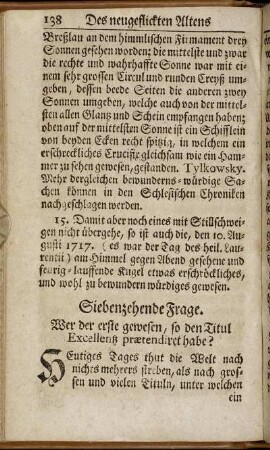 138 Des neugeflickten Altens
Breßlau an dem himmlischen Firmament drey
Sonnen gesehen worden; die mittelste und zwar
die rechte und wahrhaffte Sonne war mit ei-
nem sehr grossen Circul und runden Creyß um-
geben, dessen beede Seiten die anderen zwey
Sonnen umgeben, welche auch von der mittel-
sten allen Glantz und Schein empfangen haben;
oben auf der mittelsten Sonne ist ein Schifflein
von beyden Ecken recht spitzig, in welchem ein
erschreckliches Crucifix gleichsam wie ein Ham-
mer zu sehen gewesen, gestanden. Tylkowsky.
Mehr dergleichen bewunderns-würdige Sa-
chen können in den Schlesischen Chroniken
nachgeschlagen werden.
15. Damit aber noch eines mit Stillschwei-
gen nicht übergehe, so ist auch die, den 10. Au-
gusti 1717. (es war der Tag des heil. Lau-
rentii) am Himmel gegen Abend gesehene und
feurig-lauffende Kugel etwas erschröckliches,
und wohl zu bewundern würdiges gewesen.
Siebenzehende Frage.
Wer der erste gewesen, so den Titul
Excellentz prætendiret habe?
HEutiges Tages thut die Welt nach
nichts mehrers streben, als nach gros-
sen und vielen Tituln, unter welchen
ein